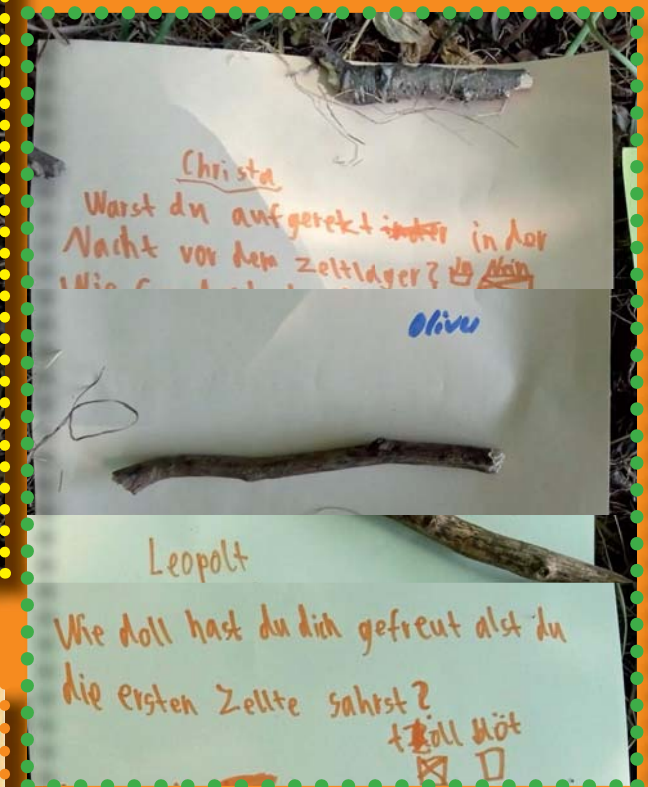 Christa
Warst du aufgerekt in der
Nacht vor dem Zeltlager? Ja Nein
Oliver
Leopolt
Wie doll hast du dich gefreut alst du
die ersten Zellte sahrst?
töll blöt